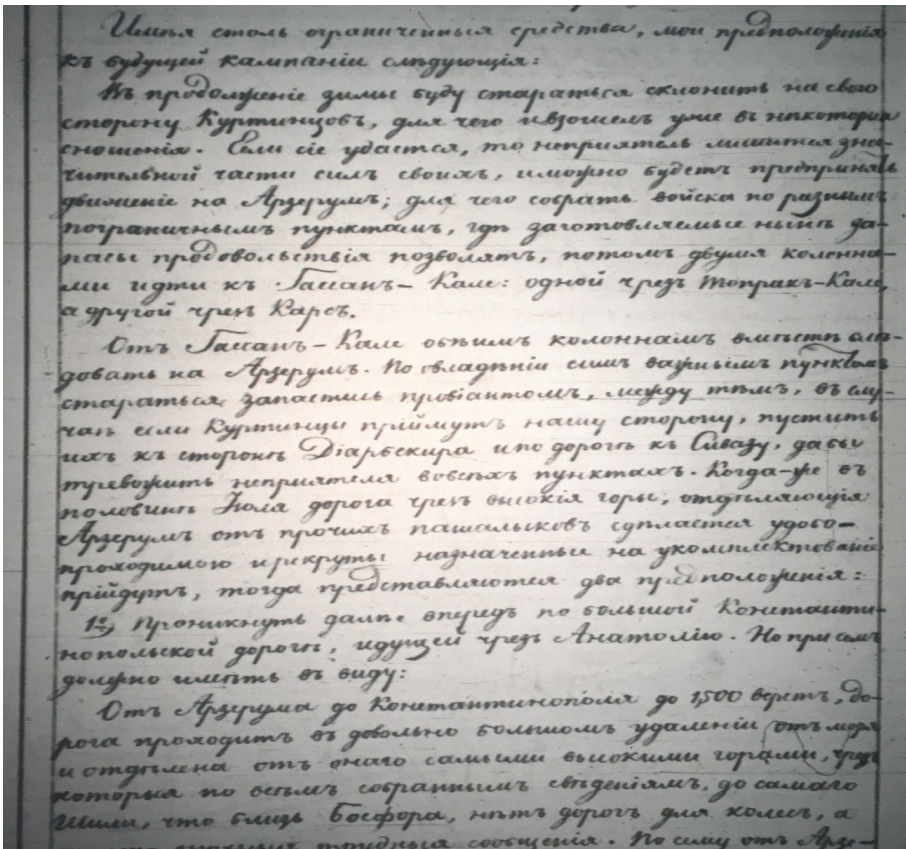 Имѣя столь ограниченныя средства, мои предположенія
къ будущей кампаніи слѣдующія:
Въ продолженіе зимы буду стараться склонить на свою
сторону Куртинцовъ, для чего и взошелъ уже въ нѣкоторыя
сношенія. Если сіе удастся, то непріятель лишится зна-
чительной части силъ своихъ, и можно будетъ предпринять
движеніе на Арзерумъ; для чего собрать войска по разнымъ
пограничнымъ пунктамъ, гдѣ заготовляемые нынѣ за-
пасы продовольствія позволятъ, потомъ двумя колонна-
ми идти къ Гассанъ-Кале: одной чрезъ Топракъ-Кале,
а другой чрезъ Карсъ.
Отъ Гассанъ-Кале обѣимъ колоннамъ вмѣстѣ слѣ-
довать на Арзерумъ. По овладѣніи симъ важнымъ пунктомъ
стараться запастись провіантомъ, между тѣмъ, въ слу-
чаѣ если Куртинцы пріймутъ нашу сторону, пустить
ихъ къ сторонѣ Діарбекира и по дорогѣ къ Сивазу, дабы
тревожить непріятеля во всѣхъ пунктахъ. Когда-же въ
половинѣ Іюля дорога чрезъ высокія горы, отдѣляющія
Арзерумъ отъ прочихъ пашалыковъ сдѣлается удобо-
проходимою и рекруты назначенные на укомплектованіе
прійдутъ, тогда представляются два предположенія:
1е) Проникнуть далѣе впередъ по большой Константи-
нопольской дорогѣ, идущей чрезъ Анатолію. Но при семъ
должно имѣть въ виду:
Отъ Арзерума до Константинополя до 1,500 верстъ, до-
рога проходитъ въ довольно большомъ удаленіи отъ моря
и отдѣлена отъ онаго самыми высокими горами, чрезъ
которыя по всѣмъ собраннымъ свѣденіямъ, до самаго
Шили, что близь Босфора, нѣтъ дорогъ для колесъ, а
трудныя сообщенія. По сему отъ Арзе-